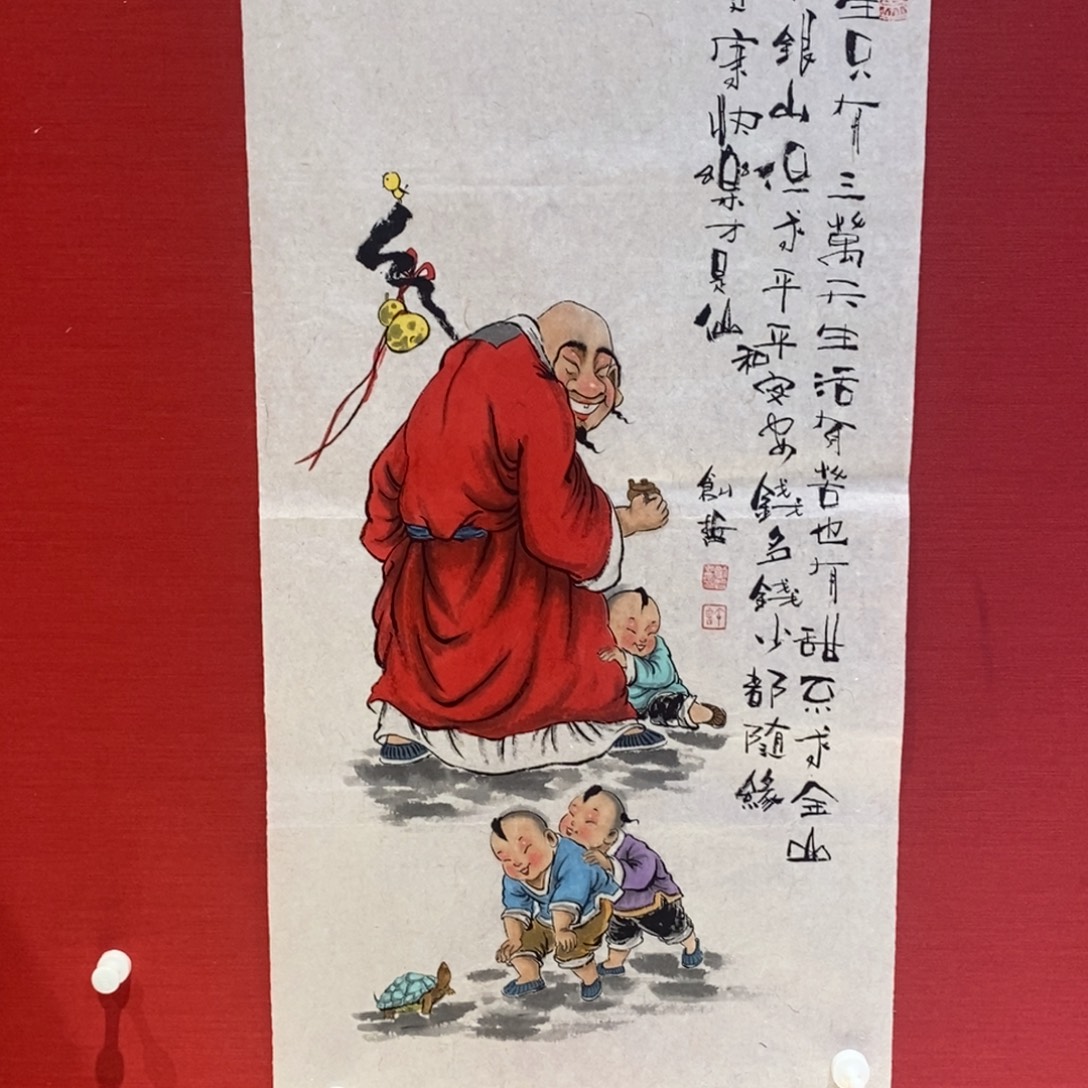 生只有三萬天生活有苦也有甜不求金山
銀山但求平平安安錢多錢少都隨緣
快樂才是仙
和
創哲